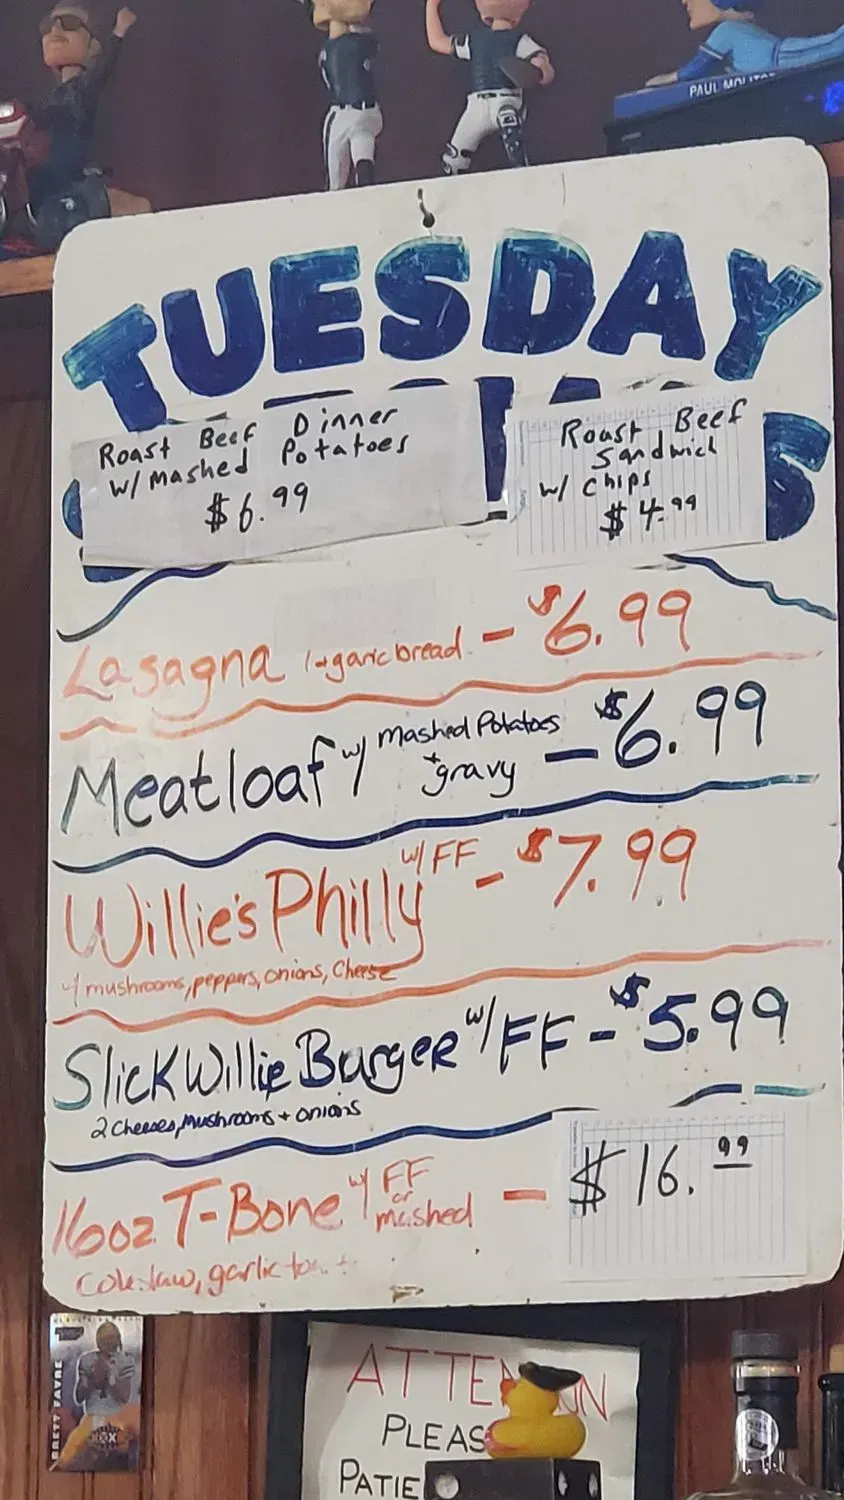 PAUL MOLITOR
TUESDAY
Roast Beef Dinner
w/ Mashed Potatoes
$6.99
Roast Beef
Sandwich
w/ chips
$4.99
Lasagna 1+garic bread - $6.99
Meatloaf w/ Mashed Potatoes + gravy - $6.99
Willie's Philly w/ FF - $7.99
w/ mushrooms, peppers, onions, Cheese
Slick Willie Burger w/ FF - $5.99
2 Cheeses, Mushrooms + onions
16oz T-Bone w/ FF or mashed - $16.99
Coleslaw, garlic toast
BRETT FAVRE
XXX
ATTEN N
PLEAS
PATIE